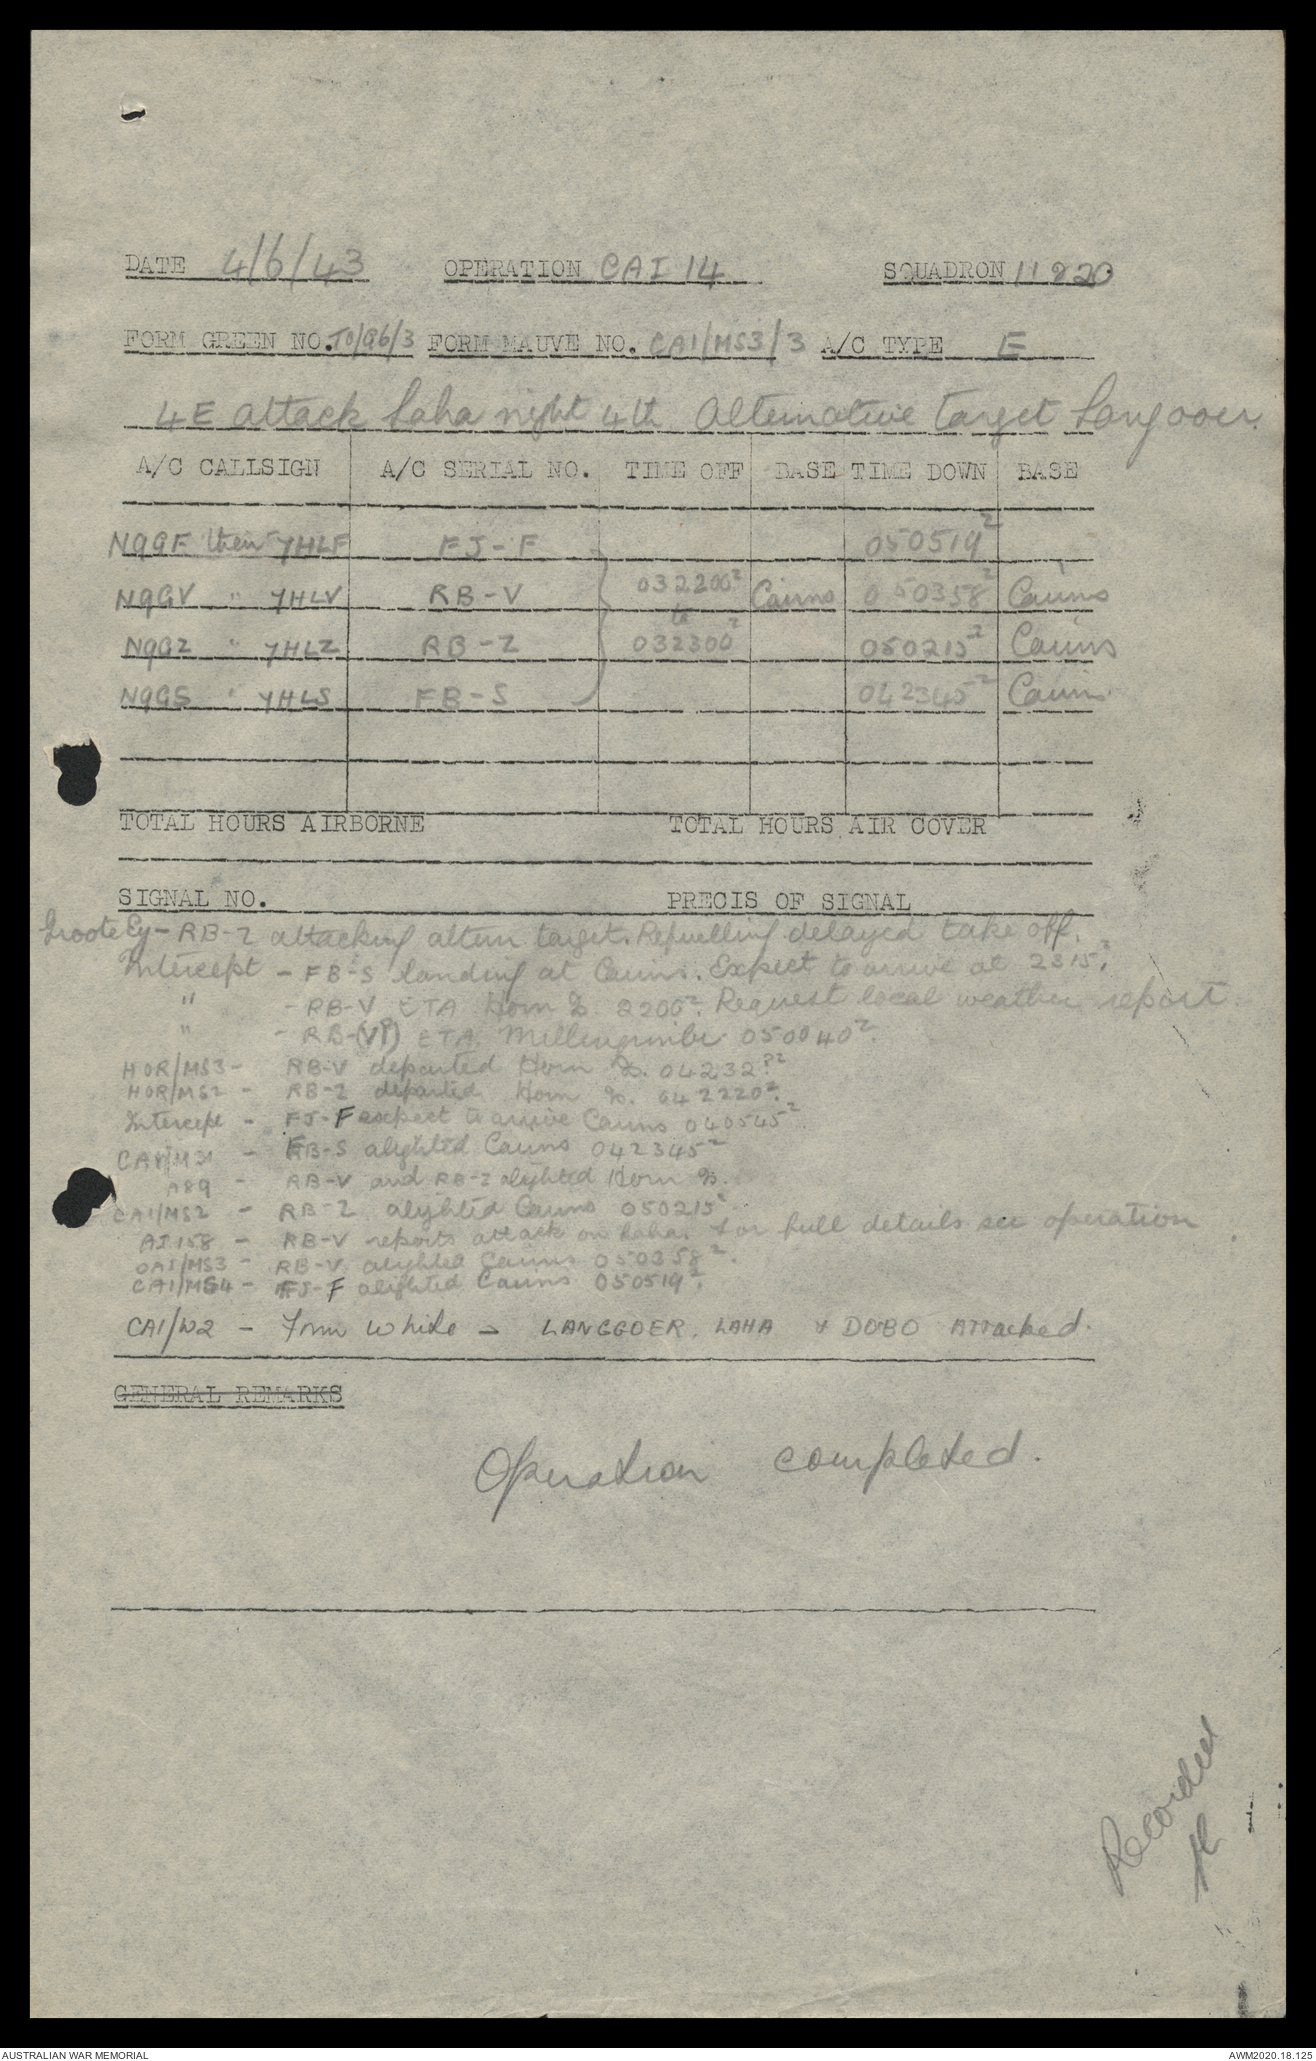 DATE 4/6/43 OPERATION CAI 14 SQUADRON 11 & 20
FORM GREEN NO. TO/96/3 FORM MAUVE NO. CAI/MS3/3 A/C TYPE E
4E attack Laha night 4th Alternative target Langgoer.
A/C CALLSIGN A/C SERIAL NO. TIME OFF BASE TIME DOWN BASE
N9GF then YHLF FJ-F 050519Z
N9GV " YHLV RB-V 032200Z Cairns 050358Z Cairns
to
N9GZ " YHLZ RB-Z 032300Z 050215Z Cairns
N9GS " YHLS FB-S 042345Z Cairns
TOTAL HOURS AIRBORNE TOTAL HOURS AIR COVER
SIGNAL NO. PRECIS OF SIGNAL
Groote Ey - RB-Z attacking altern target. Refuelling delayed take off.
Intercept - FB-S landing at Cairns. Expect to arrive at 2315Z.
" - RB-V ETA Horn Is. 2200Z. Request local weather report.
" - RB-(V?) ETA Millingimbi 050040Z.
HOR/MS3 - RB-V departed Horn Is. 04232?Z
HOR/MS2 - RB-Z departed Horn Is. 042220Z.
Intercept - FJ-F expect to arrive Cairns 040545Z
- FB-S alighted Cairns 042345Z
A89 - RB-V and RB-Z alighted Horn Is.
CAI/MS2 - RB-Z alighted Cairns 050215Z
AI158 - RB-V reports attack on Laha. For full details see operation
CAI/MS3 - RB-V alighted Cairns 050358Z.
CAI/MS4 - FJ-F alighted Cairns 050519Z.
CAI/W2 - Form White - LANGGOER, LAHA & DOBO Attacked.
GENERAL REMARKS
Operation completed.
Recorded
AUSTRALIAN WAR MEMORIAL AWM2020.18.125